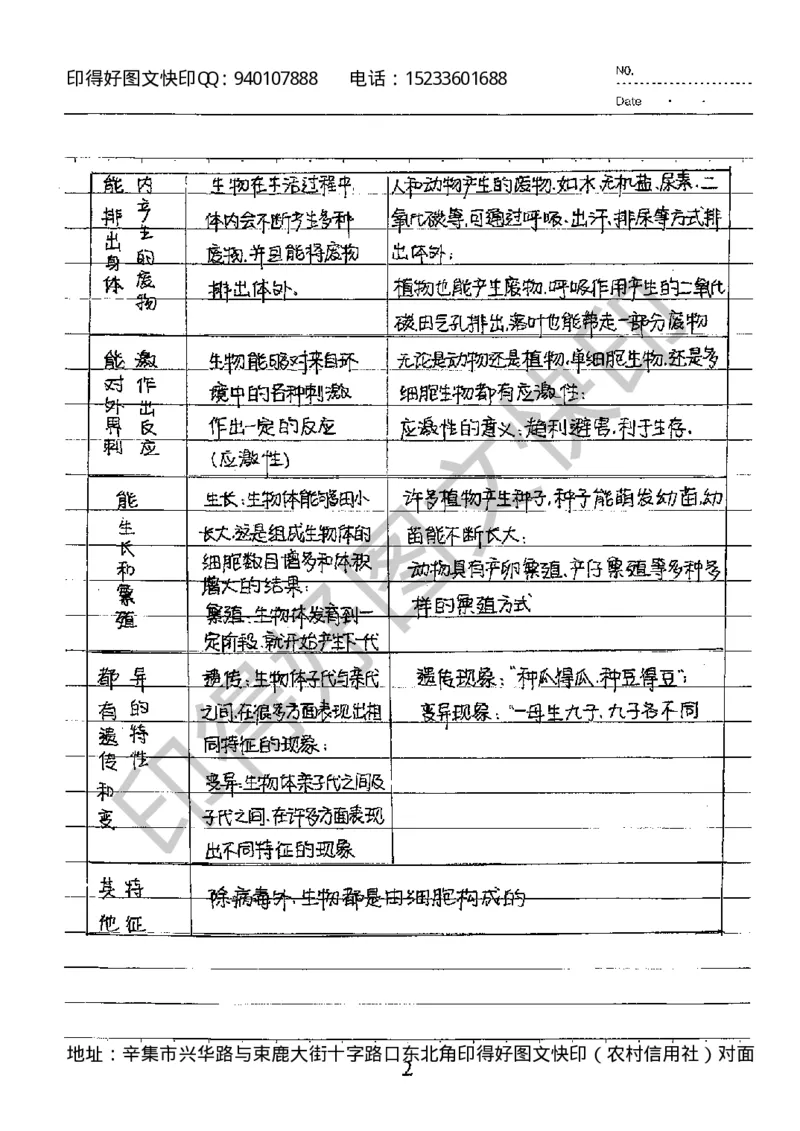 印得好图文快印QQ：940107888 电话：15233601688
NO.
Date
能排出身体
内产生的废物
生物在生活过程中,
体内会不断产生多种
废物,并且能将废物
排出体外。
人和动物产生的废物,如水,无机盐、尿素、二
氧化碳等,可通过呼吸、出汗、排尿等方式排
出体外;
植物也能产生废物,呼吸作用产生的二氧化
碳由气孔排出,落叶也能带走一部分废物
能对外界刺
激作出反应
生物能够对来自环
境中的各种刺激
作出一定的反应
(应激性)
无论是动物还是植物,单细胞生物,还是多
细胞生物都有应激性;
应激性的意义:趋利避害,利于生存.
能生长和繁殖
生长:生物体能够由小
长大,这是组成生物体的
细胞数目增多和体积
增大的结果;
繁殖:生物体发育到一
定阶段,就开始产生下一代
许多植物产生种子,种子能萌发幼苗,幼
苗能不断长大;
动物具有产卵繁殖、产仔繁殖等多种多
样的繁殖方式
都有遗传和变
异的特性
遗传:生物体子代与亲代
之间,在很多方面表现出相
同特征的现象;
变异:生物体亲子代之间及
子代之间,在许多方面表现
出不同特征的现象
遗传现象:"种瓜得瓜,种豆得豆";
变异现象:"一母生九子,九子各不同
其他
特征
除病毒外,生物都是由细胞构成的
地址：辛集市兴华路与束鹿大街十字路口东北角印得好图文快印（农村信用社）对面
2
印得好图文快印